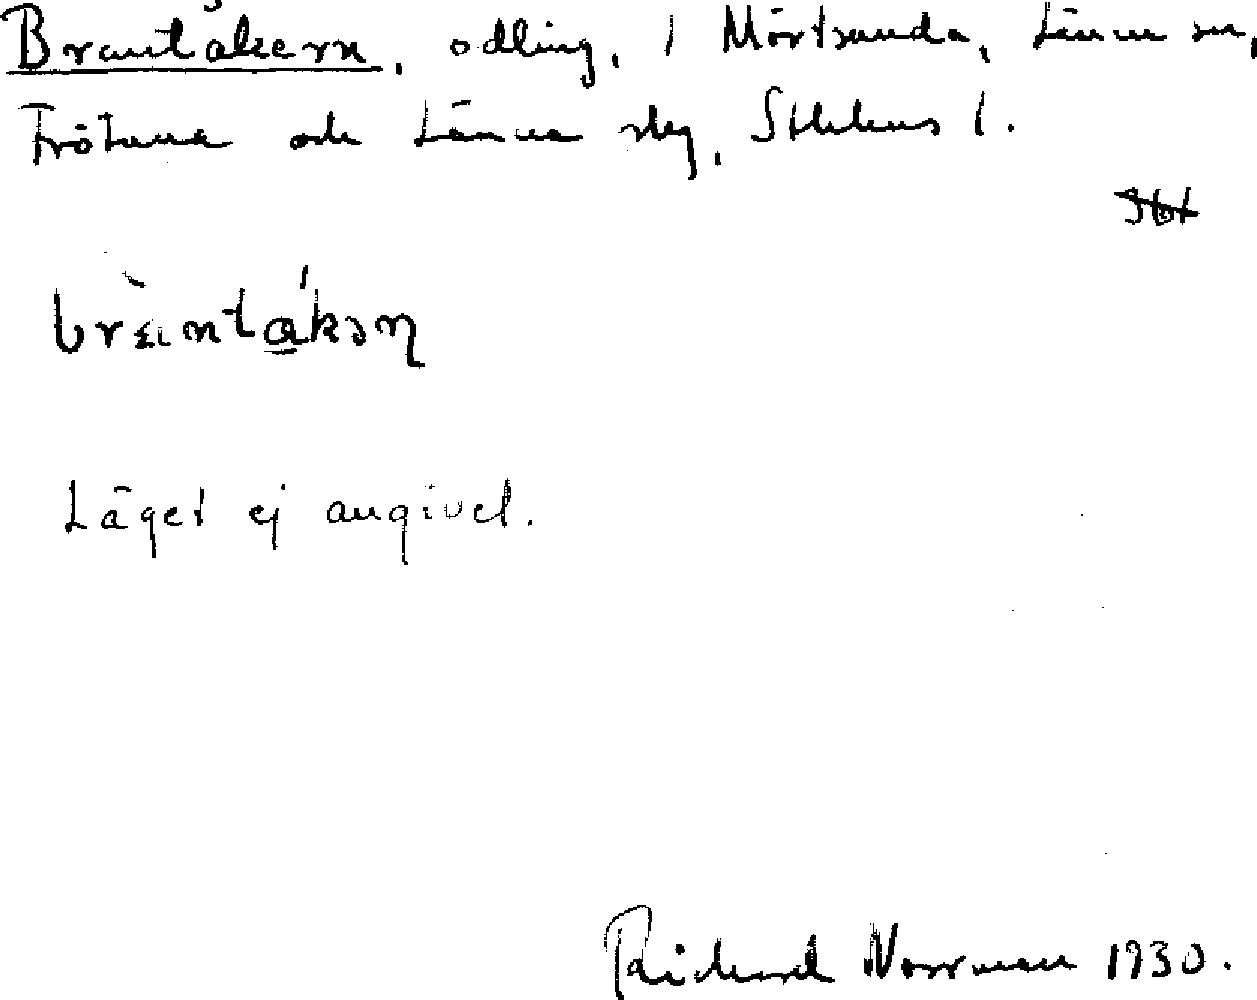 Brantåkern, odling, i Mörtsunda, Länna sn,
Frötuna och Länna skg, Sthlms l.
Läget ej angivet.
Richard Norrman 1930.